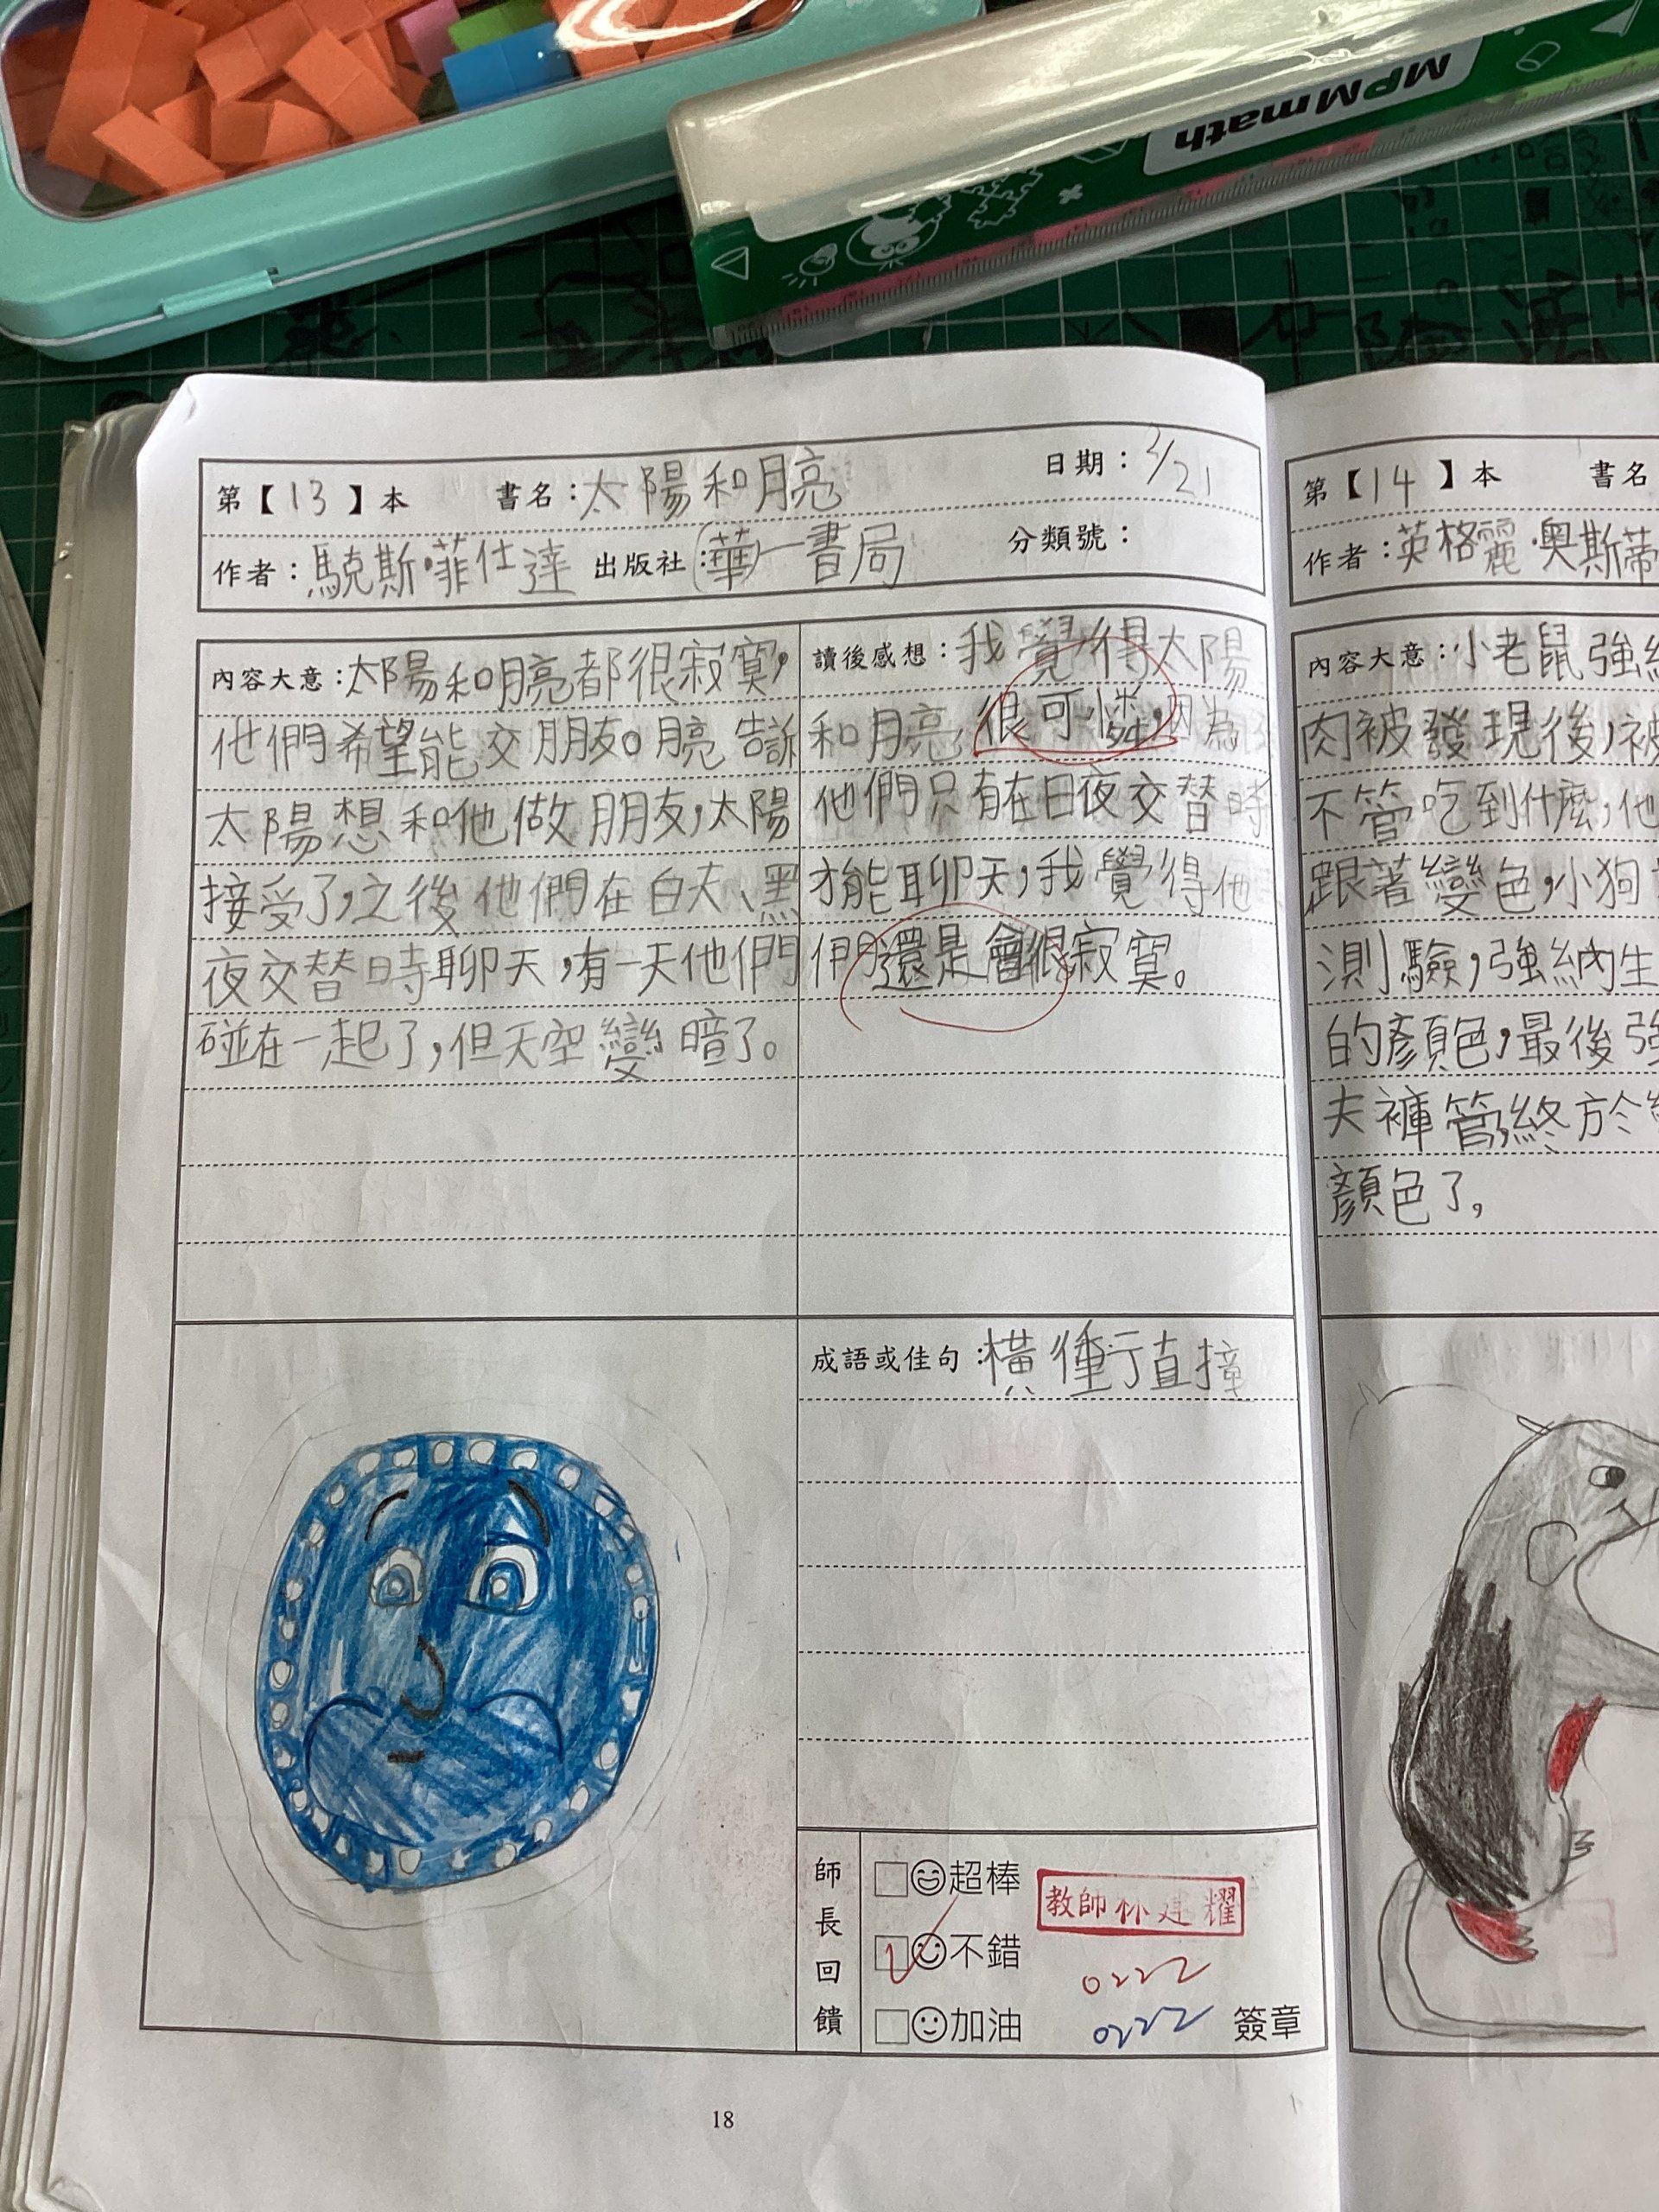 MPMmath
第【13】本 書名:太陽和月亮 日期:2/21
作者:駿斯·菲仕達 出版社:華一書局 分類號:
內容大意:太陽和月亮都很寂寞,
他們希望能交朋友。月亮告訴
太陽想和他做朋友,太陽
接受了,之後他們在白天、黑
夜交替時聊天,有一天他們
碰在一起了,但天空變暗了。
讀後感想:我覺得太陽
和月亮很可憐,因為
他們只有在日夜交替時
才能聊天,我覺得他
們還是會很寂寞。
成語或佳句:橫衝直撞
師長回饋
超棒
不錯
加油
教師林建耀
0222
0222 簽章
18
第【14】本 書名
作者:英格麗·奧斯蒂
內容大意:小老鼠強納
肉被發現後,被
不管吃到什麼,他
跟著變色,小狗
測驗,強納生
的顏色,最後強
夫褲管,終於
顏色了,